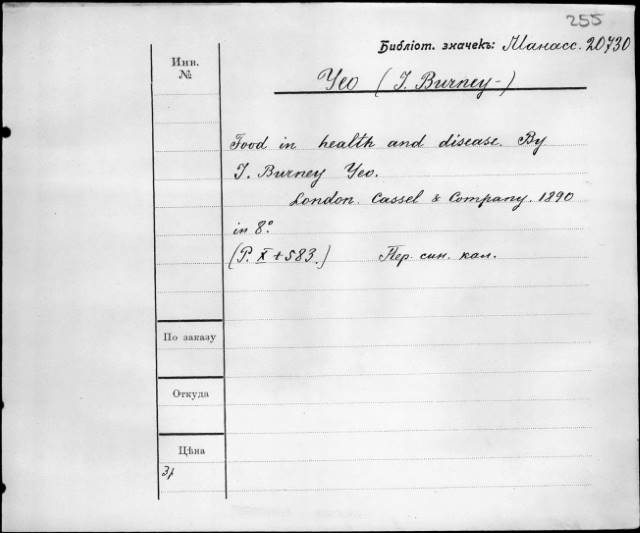 255
Библіот. значекъ: Манасс. 20730
Инв.
№
Yeo (I. Burney-)
Food in health and disease. By
I. Burney Yeo.
London. Cassel & Company. 1890
in 8º.
(P. X + 583.) Пер. син. кал.
По заказу
Откуда
Цѣна
3р